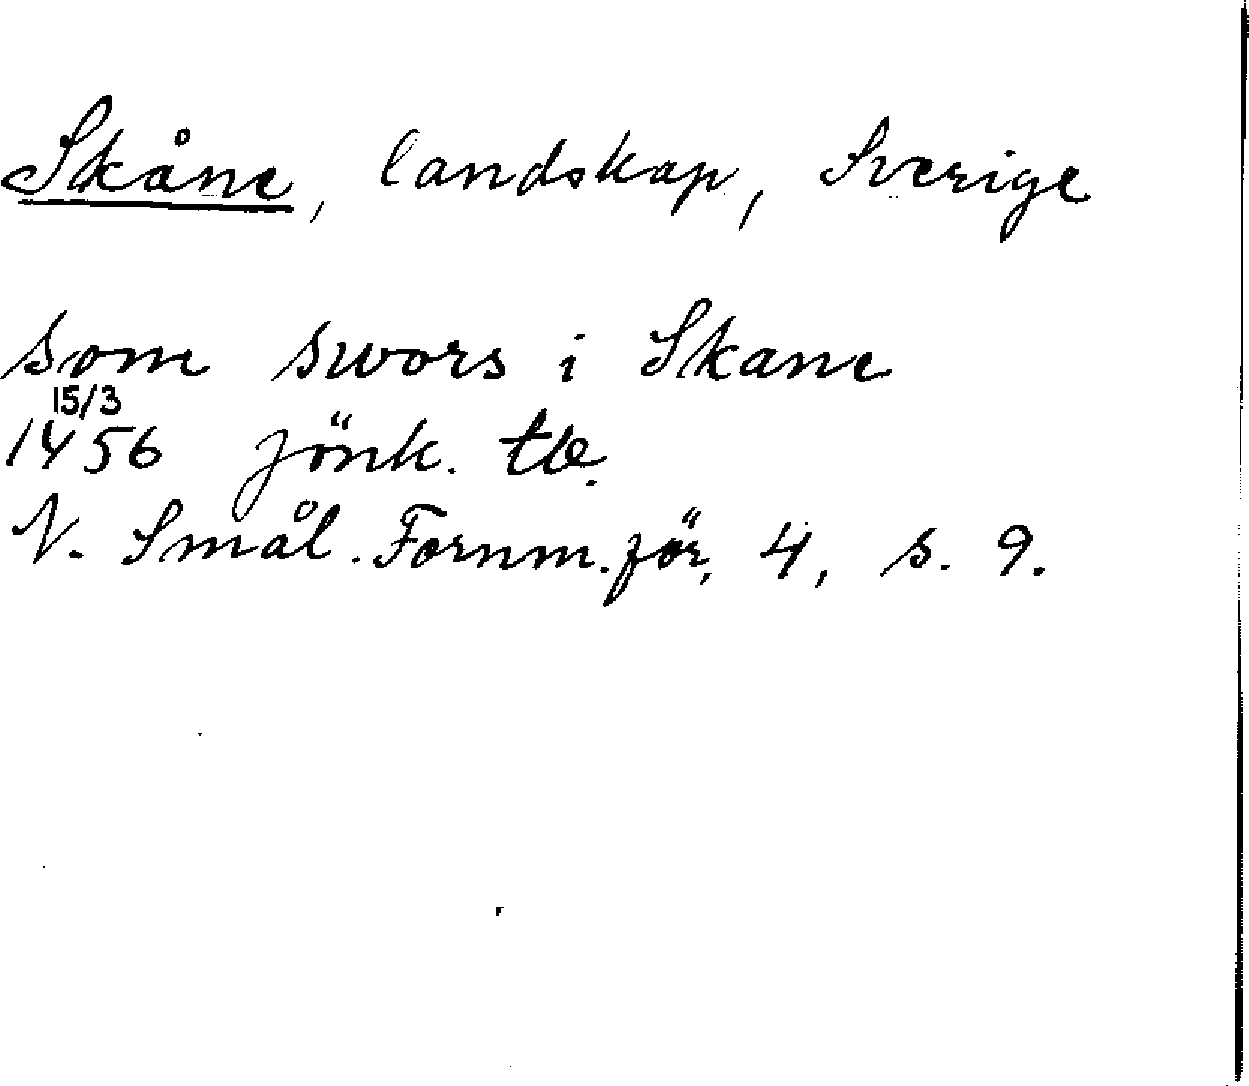 Skåne, landskap, Sverige
som swors i Skane
15/3
1456 Jönk. tb.
N. Smål. Fornm.för, 4, s. 9.